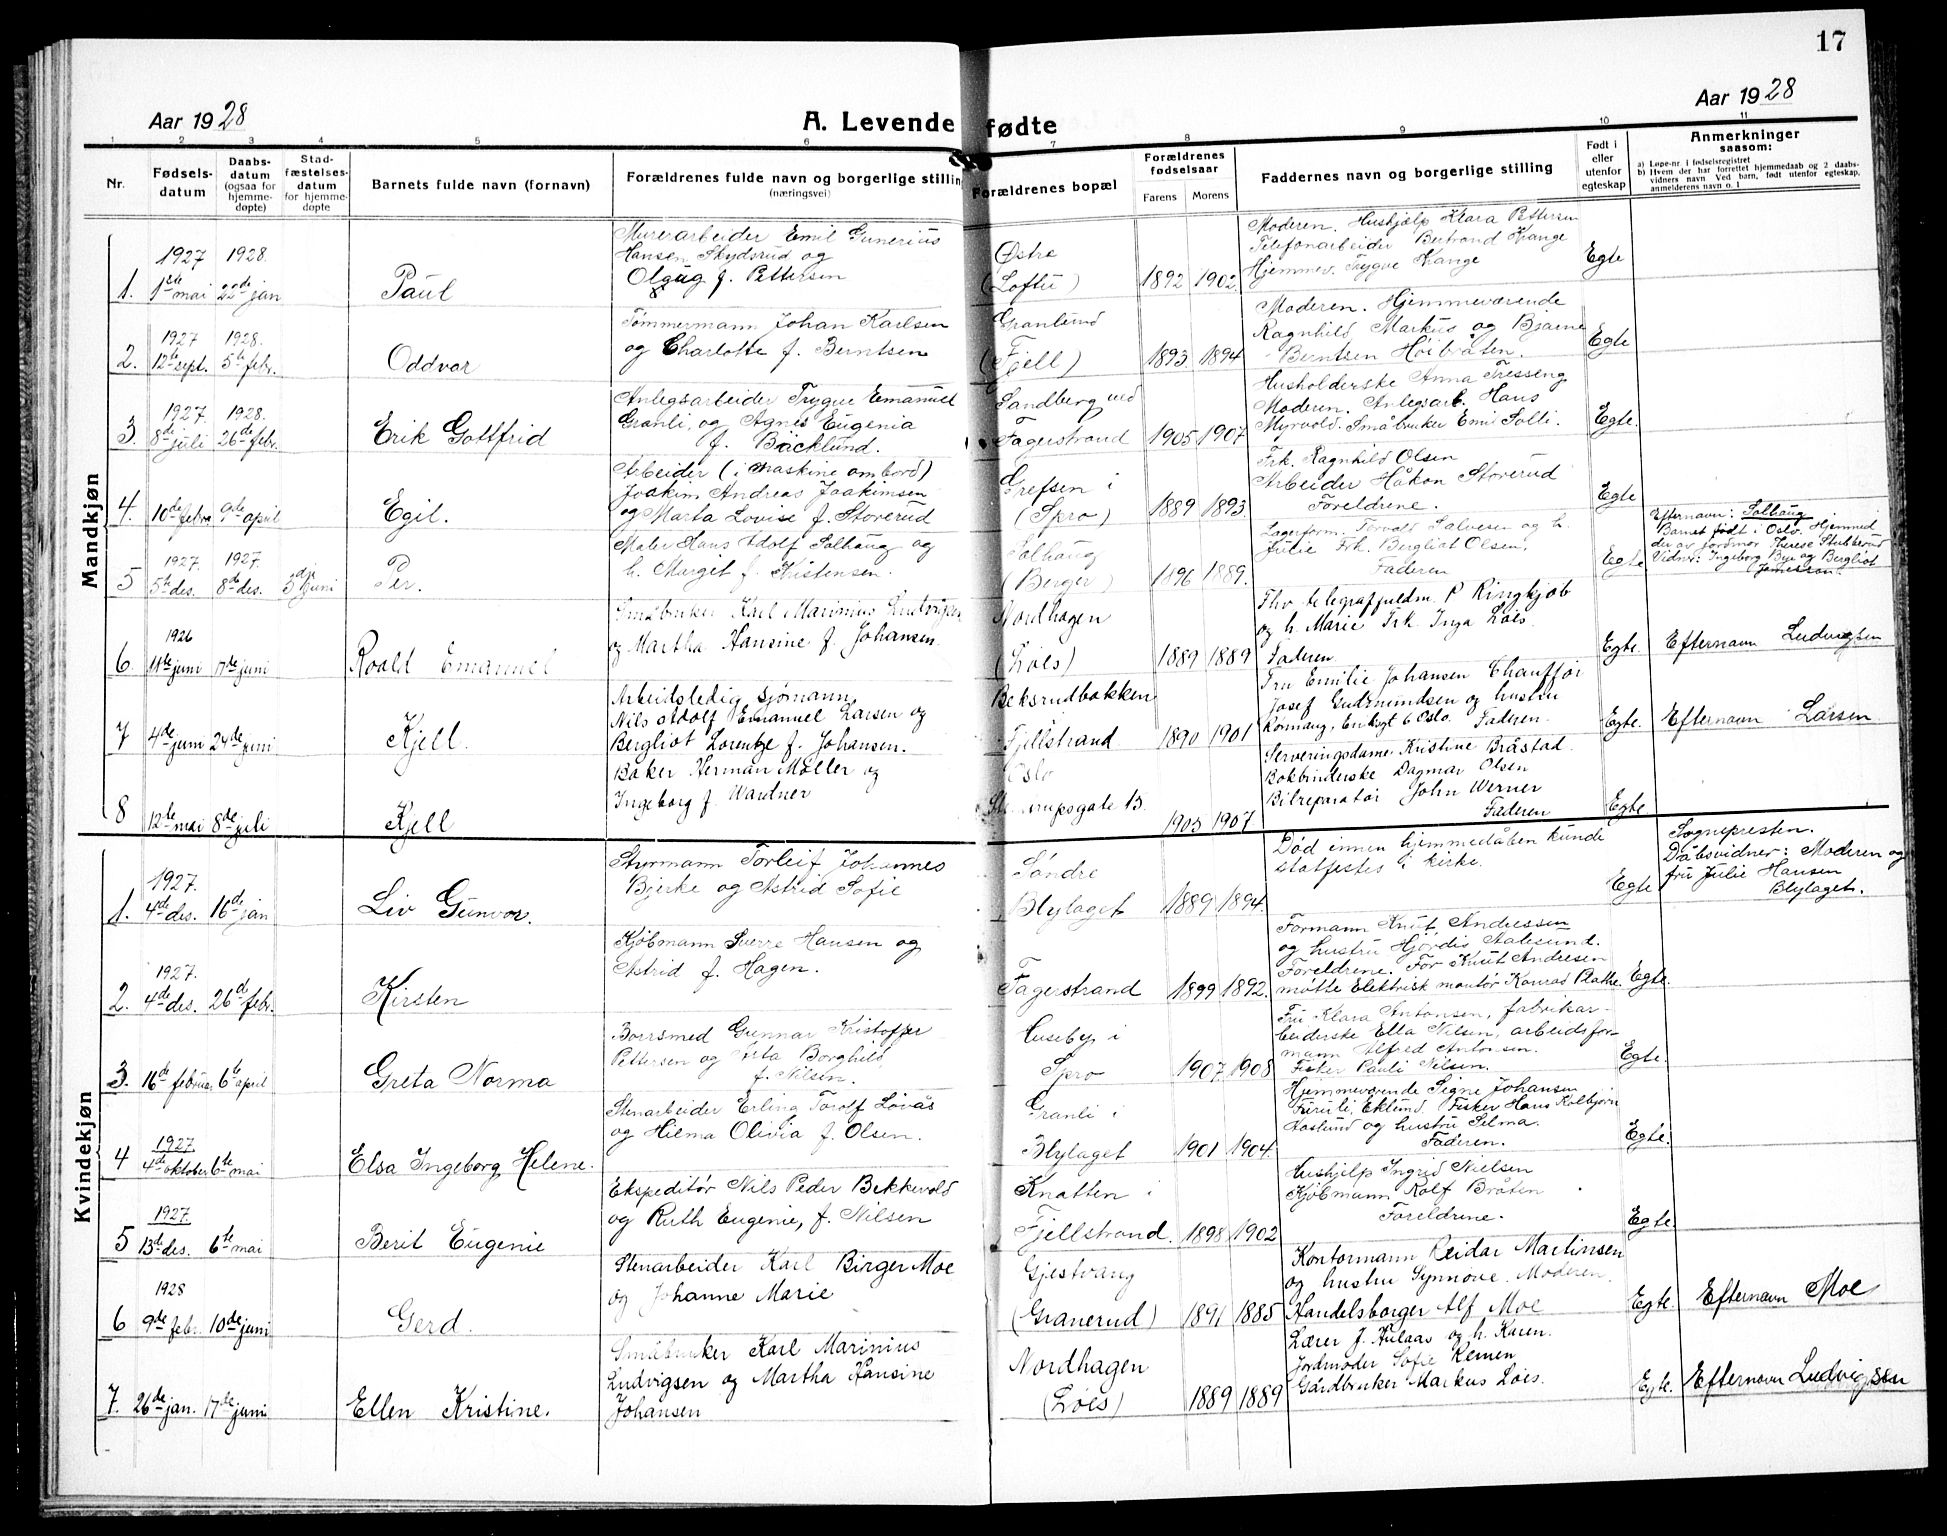 17
Aar 1928
A. Levende fødte
Aar 1928
1 2 3 4 5 6 7 8 9 10 11
Nr.
Fødselsdatum
Daabsdatum (ogsaa for hjemmedøpte)
Stadfæstelsesdatum for hjemmedøpte
Barnets fulde navn (fornavn)
Forældrenes fulde navn og borgerlige stilling
(næringsvei)
Forældrenes bopæl
Forældrenes fødselsaar
Farens Morens
Faddernes navn og borgerlige stilling
Født i eller utenfor egteskap
Anmerkninger saasom:
a) Løpe-nr. i fødselsregistret
b) Hvem der har forrettet hjemmedaab og 2 daabsvidners navn Ved barn, født utenfor egteskap, anmelderens navn o. l
Mandkjøn
Murerarbeider Emil Gunerius
Hansen Skydsrud og
Olgug f. Pettersen
1. 1927 1ste mai 1928. 22de jan Paul
Østre
(Softu)
1892 1902.
Moderen. Hushjælp Klara Pettersen
Telefonarbeider Bertrand Krange
Hjemmev. Trygve Krange
Egte
Tømmermann Johan Karlsen
og Charlotte f. Berntsen
2. 1927 12te sept. 1928. 5te febr. Oddvar
Granlund
(Fjell)
1893. 1894
Moderen. Hjemmeværende
Ragnhild Markus og Bjarne
Berntsen Høibråten.
Egte
Anlegsarbeider Trygve Emanuel
Granli, og Agnes Eugenia
f. Bäcklund.
3. 1927 8de juli 1928. 26de febr. Erik Gottfrid
Sandberg ved
Fagerstrand
1905 1907
Husholderske Anna Tresseng
Moderen. Anlegsarb. Hans
Myrvold. Småbruker Emil Solli.
Egte.
Arbeider (i maskine ombord)
Joakim Andreas Joakimsen
og Marta Lovise f. Storerud
4. 10de febra 9de april Egil.
Grefsen i
(Spro)
1889 1893.
Frk. Ragnhild Olsen
Arbeider Håkon Storerud
Foreldrene.
Egte
Maler Hans Adolf Solhaug og
h. Marget f. Kristensen.
5 1927. 5te des. 1927. 8de des. 3dje juni Per.
Solhaug
(Berger)
1896 1889.
Lagerform. Torvald Salvesen og h.
Julie Frk. Bergliot Olsen.
Faderen
Egte
Efternavn: Solhaug
Barnet født i Oslo. Hjemmed
der av jordmor Therese Stubberud
Vidner: Ingeborg Bye og Bergliot
Jamesson.
Småbruker Karl Marinius Ludvigsen
og Martha Hansine f. Johansen.
6 1926 11te juni 17de juni Roald Emanuel
Nordhagen
(Løes)
1889 1889
Thv. telegraffuldm. P Ringkjøb
og h. Marie Frk. Inga Løes.
Faderen
Egte. Efternavn Ludvigsen
Arbeidsledig sjømann
Nils Adolf Emanuel Larsen og
Bergliot Lorentze f. Johansen.
7 4de juni 24de juni Kjell.
Beksrudbakken
Fjellstrand
1890 1901
Fru Emilie Johansen Chauffør
Josef Gudmundsen og hustru
Rønnaug, Enkegt 6 Oslo. Faderen.
Egte. Efternavn Larsen
Baker Herman Møller og
Ingeborg f. Wardner
8 12te mai 8de juli Kjell
Oslo
1905 1907
Serveringsdame Kristine Bråstad.
Bokbinderske Dagmar Olsen
Bilreparatør John Werner
Faderen
Egte
Kvindekjøn
Styrmann Torleif Johannes
Bjerke og Astrid Sofie
1. 1927. 4de des. 16de jan Liv Gunvor.
Søndre
Blylaget
1889 1894.
Død innen hjemmedåben kunde
statfestes i kirke.
Egte
Sognepresten.
Dåbsvidner: Moderen og
fru Julie Hansen
Blylaget.
Kjøbmann Sverre Hansen og
Astrid f. Hagen.
2. 1927. 4de des. 26de febr. Kirsten
Fagerstrand
1899 1892.
Formann Knut Andressen
og hustru Hjørdis Aalesund.
Foreldrene. For Knut Andresen
møtte Elektrisk montør Konrad Plathe.
Egte.
Borrsmed Gunnar Kristoffer
Pettersen og Asta Borghild
f. Nilsen.
3. 16de februar 6te april Greta Norma
Huseby i
Spro
1907 1908
Fru Klara Antonsen, fabrikar-
beiderske Ella Nilsen, arbeidsfor-
mann Alfred Antonsen.
Fisker Pauli Nilsen.
Egte.
Stenarbeider Erling Torolf Løvås
og Hilma Olivia f. Olsen.
4 1927. 4de oktober 6te mai Elsa Ingeborg Helene.
Granli i
Blylaget
1901 1904
Hjemmeværende Signe Johansen
Furuli, Eklund, Fisker Hans Kolbjørn
Haslund og hustru Selma.
Faderen.
Egte.
Ekspeditør Nils Peder Bekkevold
og Ruth Eugenie, f. Nilsen
5 1927. 13de des. 6te mai Berit Eugenie
Knatten i
Fjellstrand.
1898 1902
Hushjelp Ingrid Nielsen
Kjøbmann Rolf Bråten
Foreldrene.
Egte
Stenarbeider Karl Birger Moe
og Johanne Marie
6 1928 9de febr. 10de juni Gerd.
Gjestvang
(Granerud)
1891 1885
Kontormann Reidar Martinsen
og hustru Synnøve. Moderen.
Handelsborger Alf Moe
Egte. Efternavn Moe
Småbruker Karl Marinius
Ludvigsen og Martha Hansine
Johansen
7. 26de jan. 17de juni Ellen Kristine.
Nordhagen
(Løes)
1889 1889
Lærer J. Aulaas og h. Karen.
Jordmoder Sofie Remen
Gårdbruker Markus Løes.
Egte. Efternavn Ludvigsen